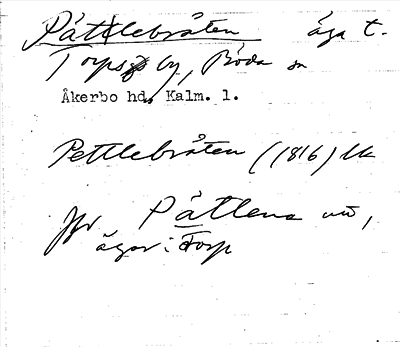 Påttlebråten äga t.
Torps by, Böda sn
Åkerbo hd. Kalm. l.
Pettlebråten (1816) lk
Jfr Påtlena
ägor: Torp